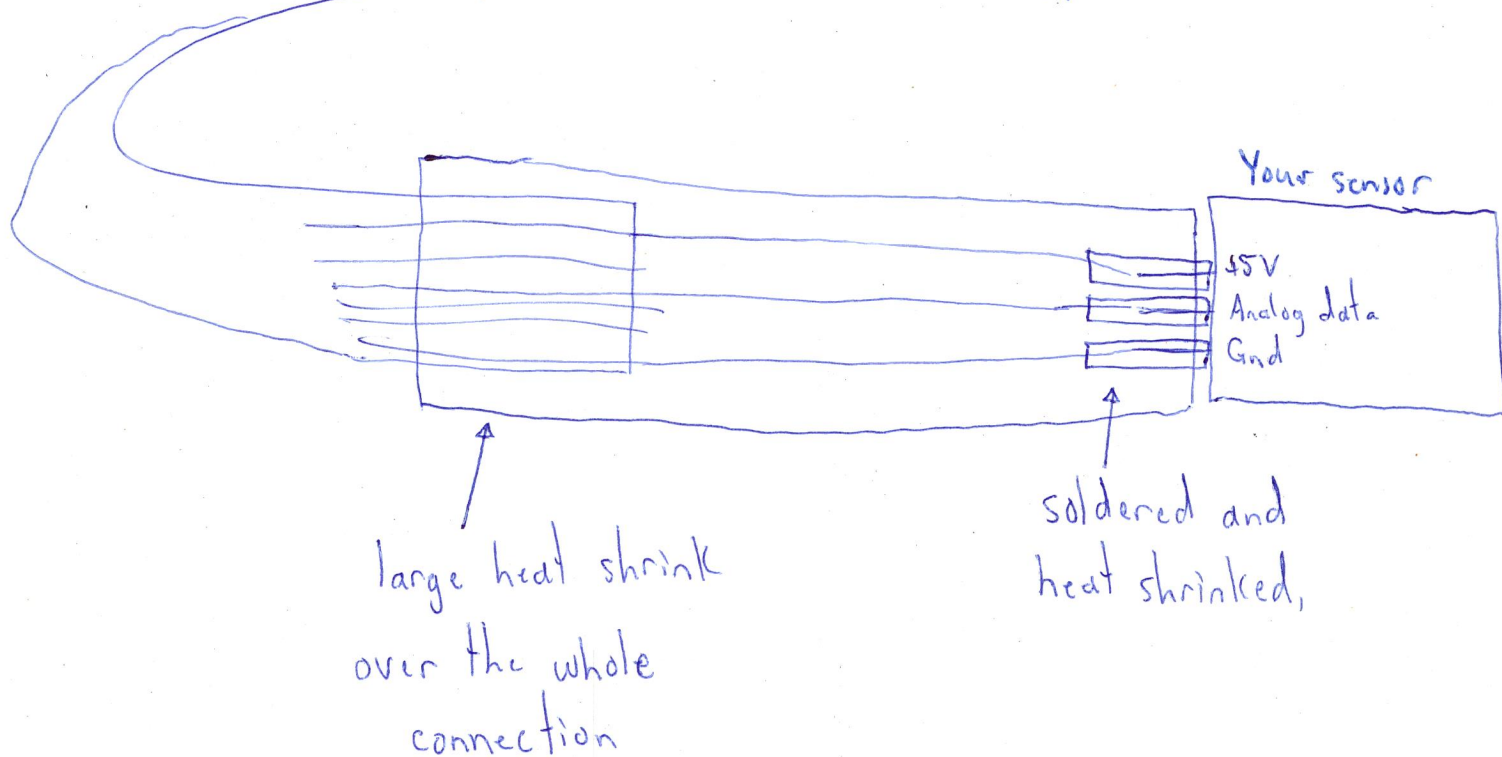 Your sensor
+5V
Analog data
Gnd
large heat shrink
over the whole
connection
soldered and
heat shrinked,